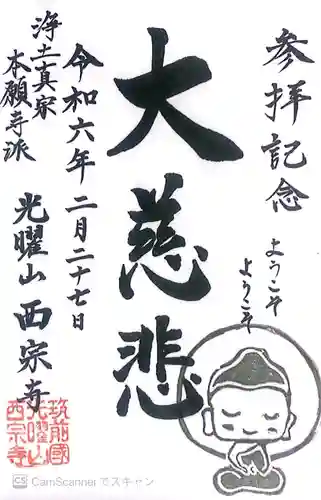 参拝記念
ようこそ
ようこそ
大慈悲
令和六年 二月二十七日
浄土真宗
本願寺派
光曜山 西宗寺
筑前國
光曜山
西宗寺
CS CamScanner でスキャン